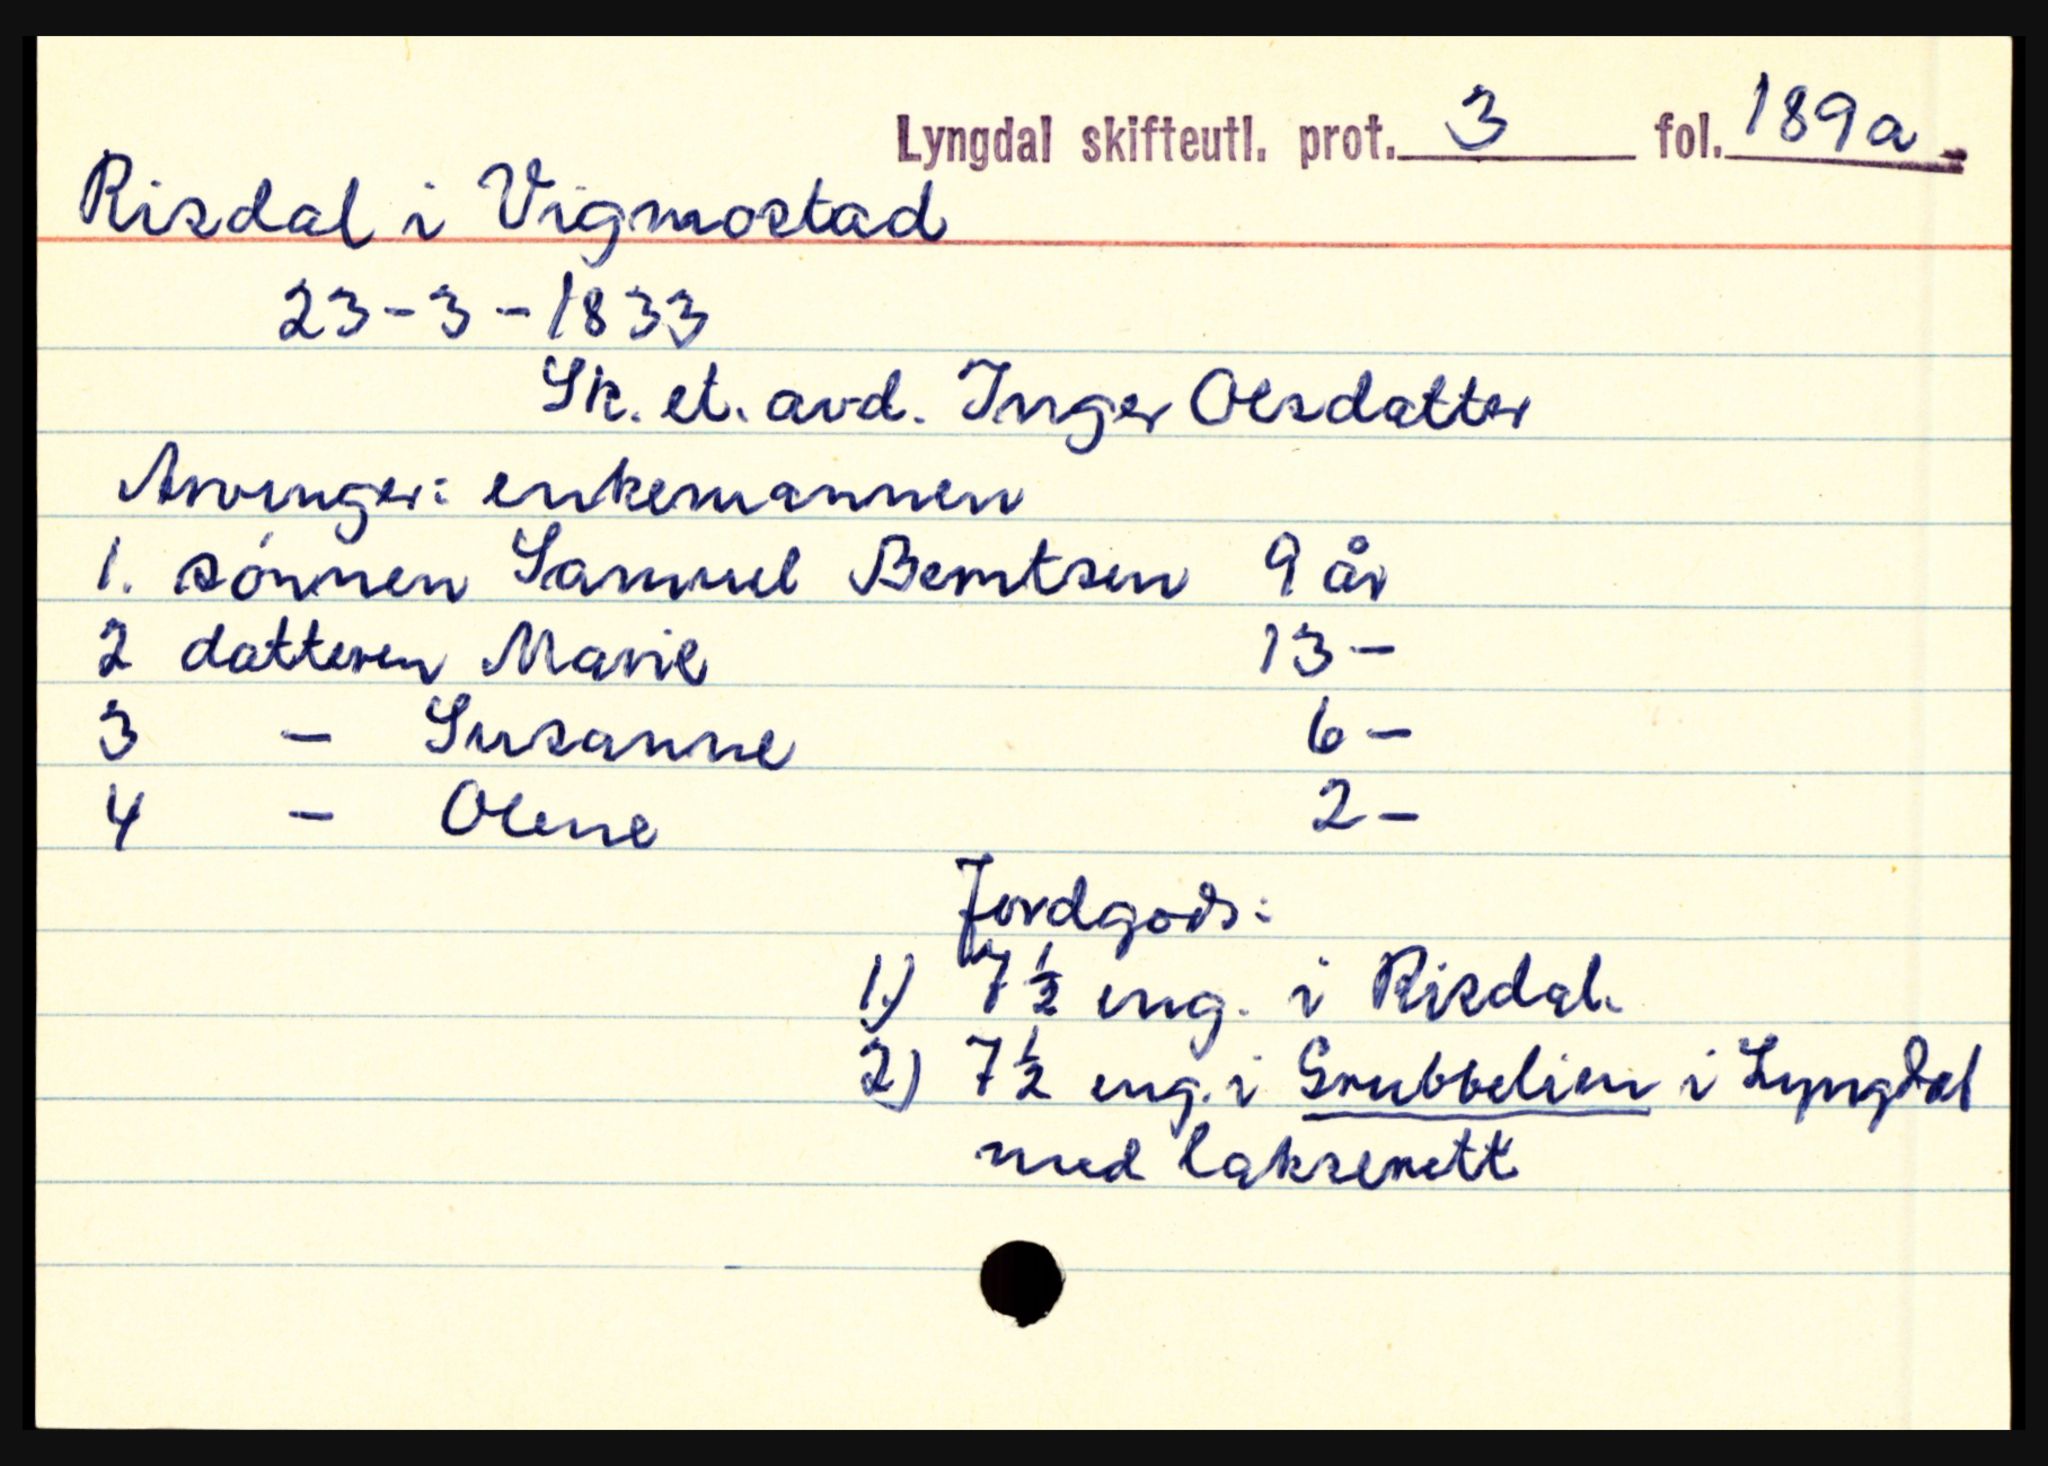 Lyngdal skifteutl. prot. 3 fol. 189a
Risdal i Vigmostad
23-3-1833
Sk. et. avd. Inger Olsdatter
Arvinger: enkemannen
1. sønnen Samuel Berntsen 9 år
2 datteren Marie 13 -
3 - Susanne 6 -
4 - Olene 2 -
Jordgods:
1.) 7½ eng. i Risdal.
2) 7½ eng. i Grubbelien i Lyngdal
med lakserett